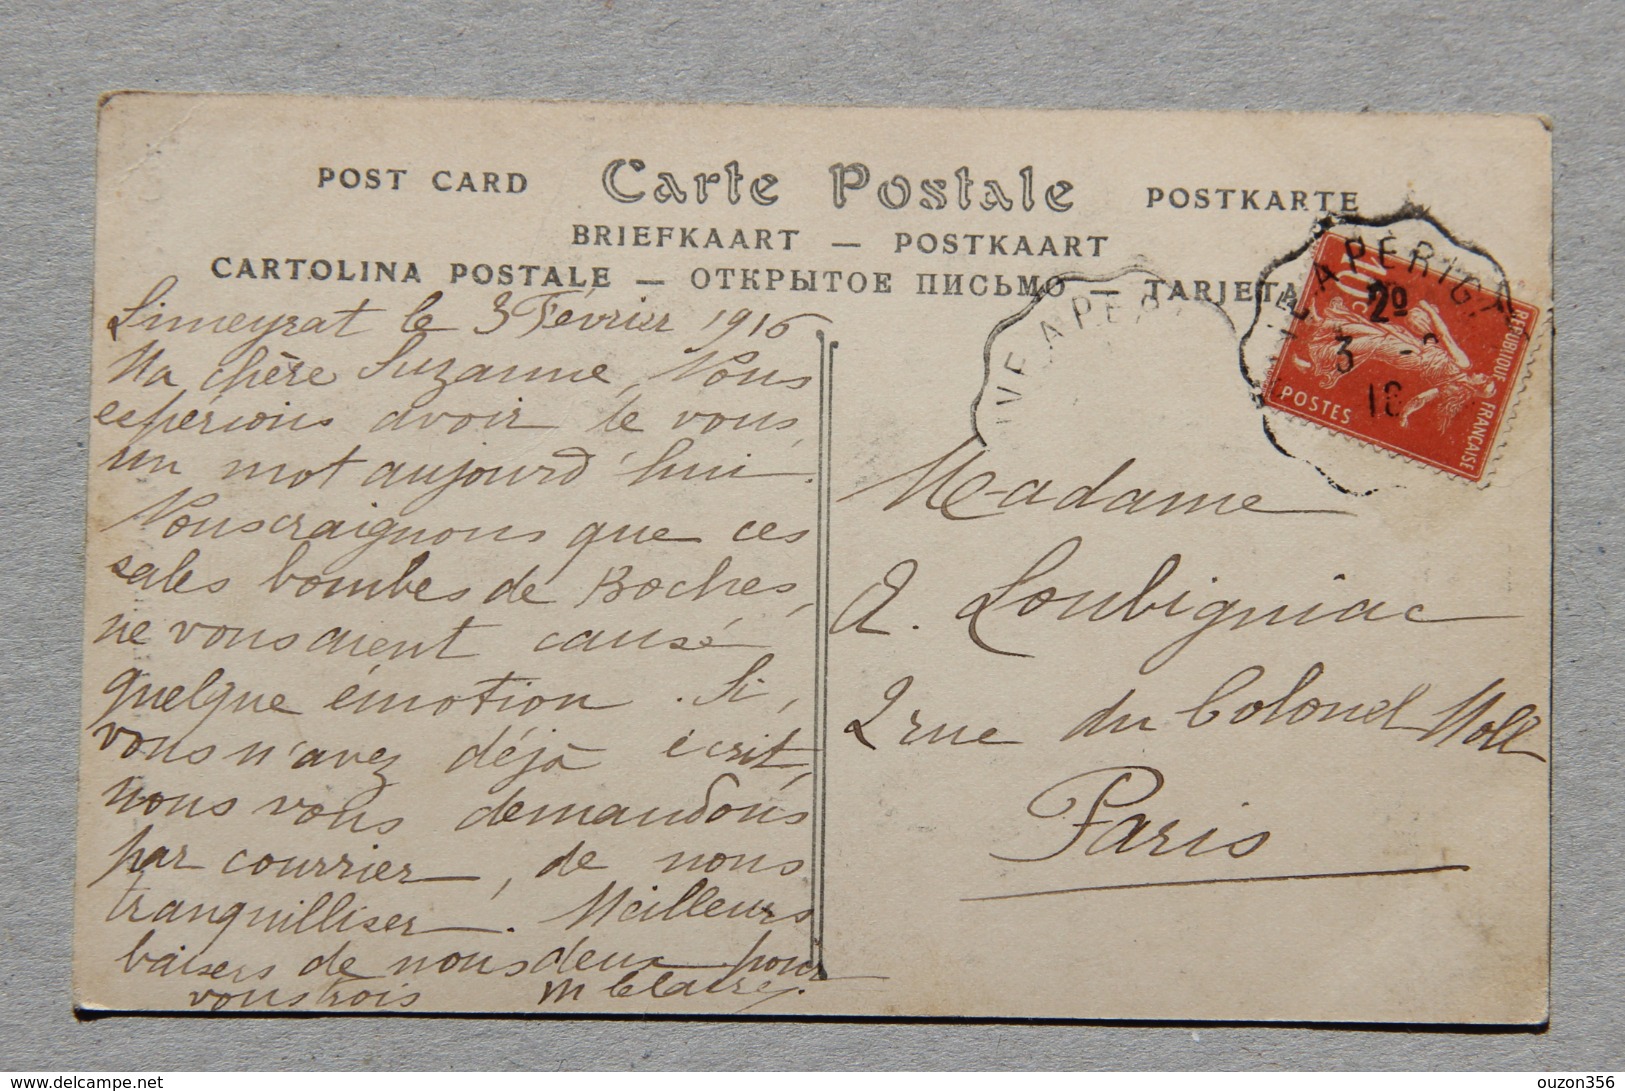 POST CARD Carte Postale POSTKARTE
BRIEFKAART — POSTKAART
CARTOLINA POSTALE — ОТКРЫТОЕ ПИСЬМО — TARJETA
Limeyrat le 3 Février 1916
Ma chère Suzanne, Nous
espérions avoir de vous,
un mot aujourd'hui.
Nous craignons que ces
sales bombes de Boches,
ne vous aient causé
quelque émotion. Si,
vous n'avez déjà écrit,
nous vous demandons
par courrier, de nous
tranquilliser. Meilleurs
baisers de nous deux pour
vous trois M Claire.
VE A PER
VE A PERIG
2º
3
16
10 c
POSTES
REPUBLIQUE FRANÇAISE
Madame
A. Loubignac
2 rue du Colonel Moll
Paris
delcampe.net
ouzon356